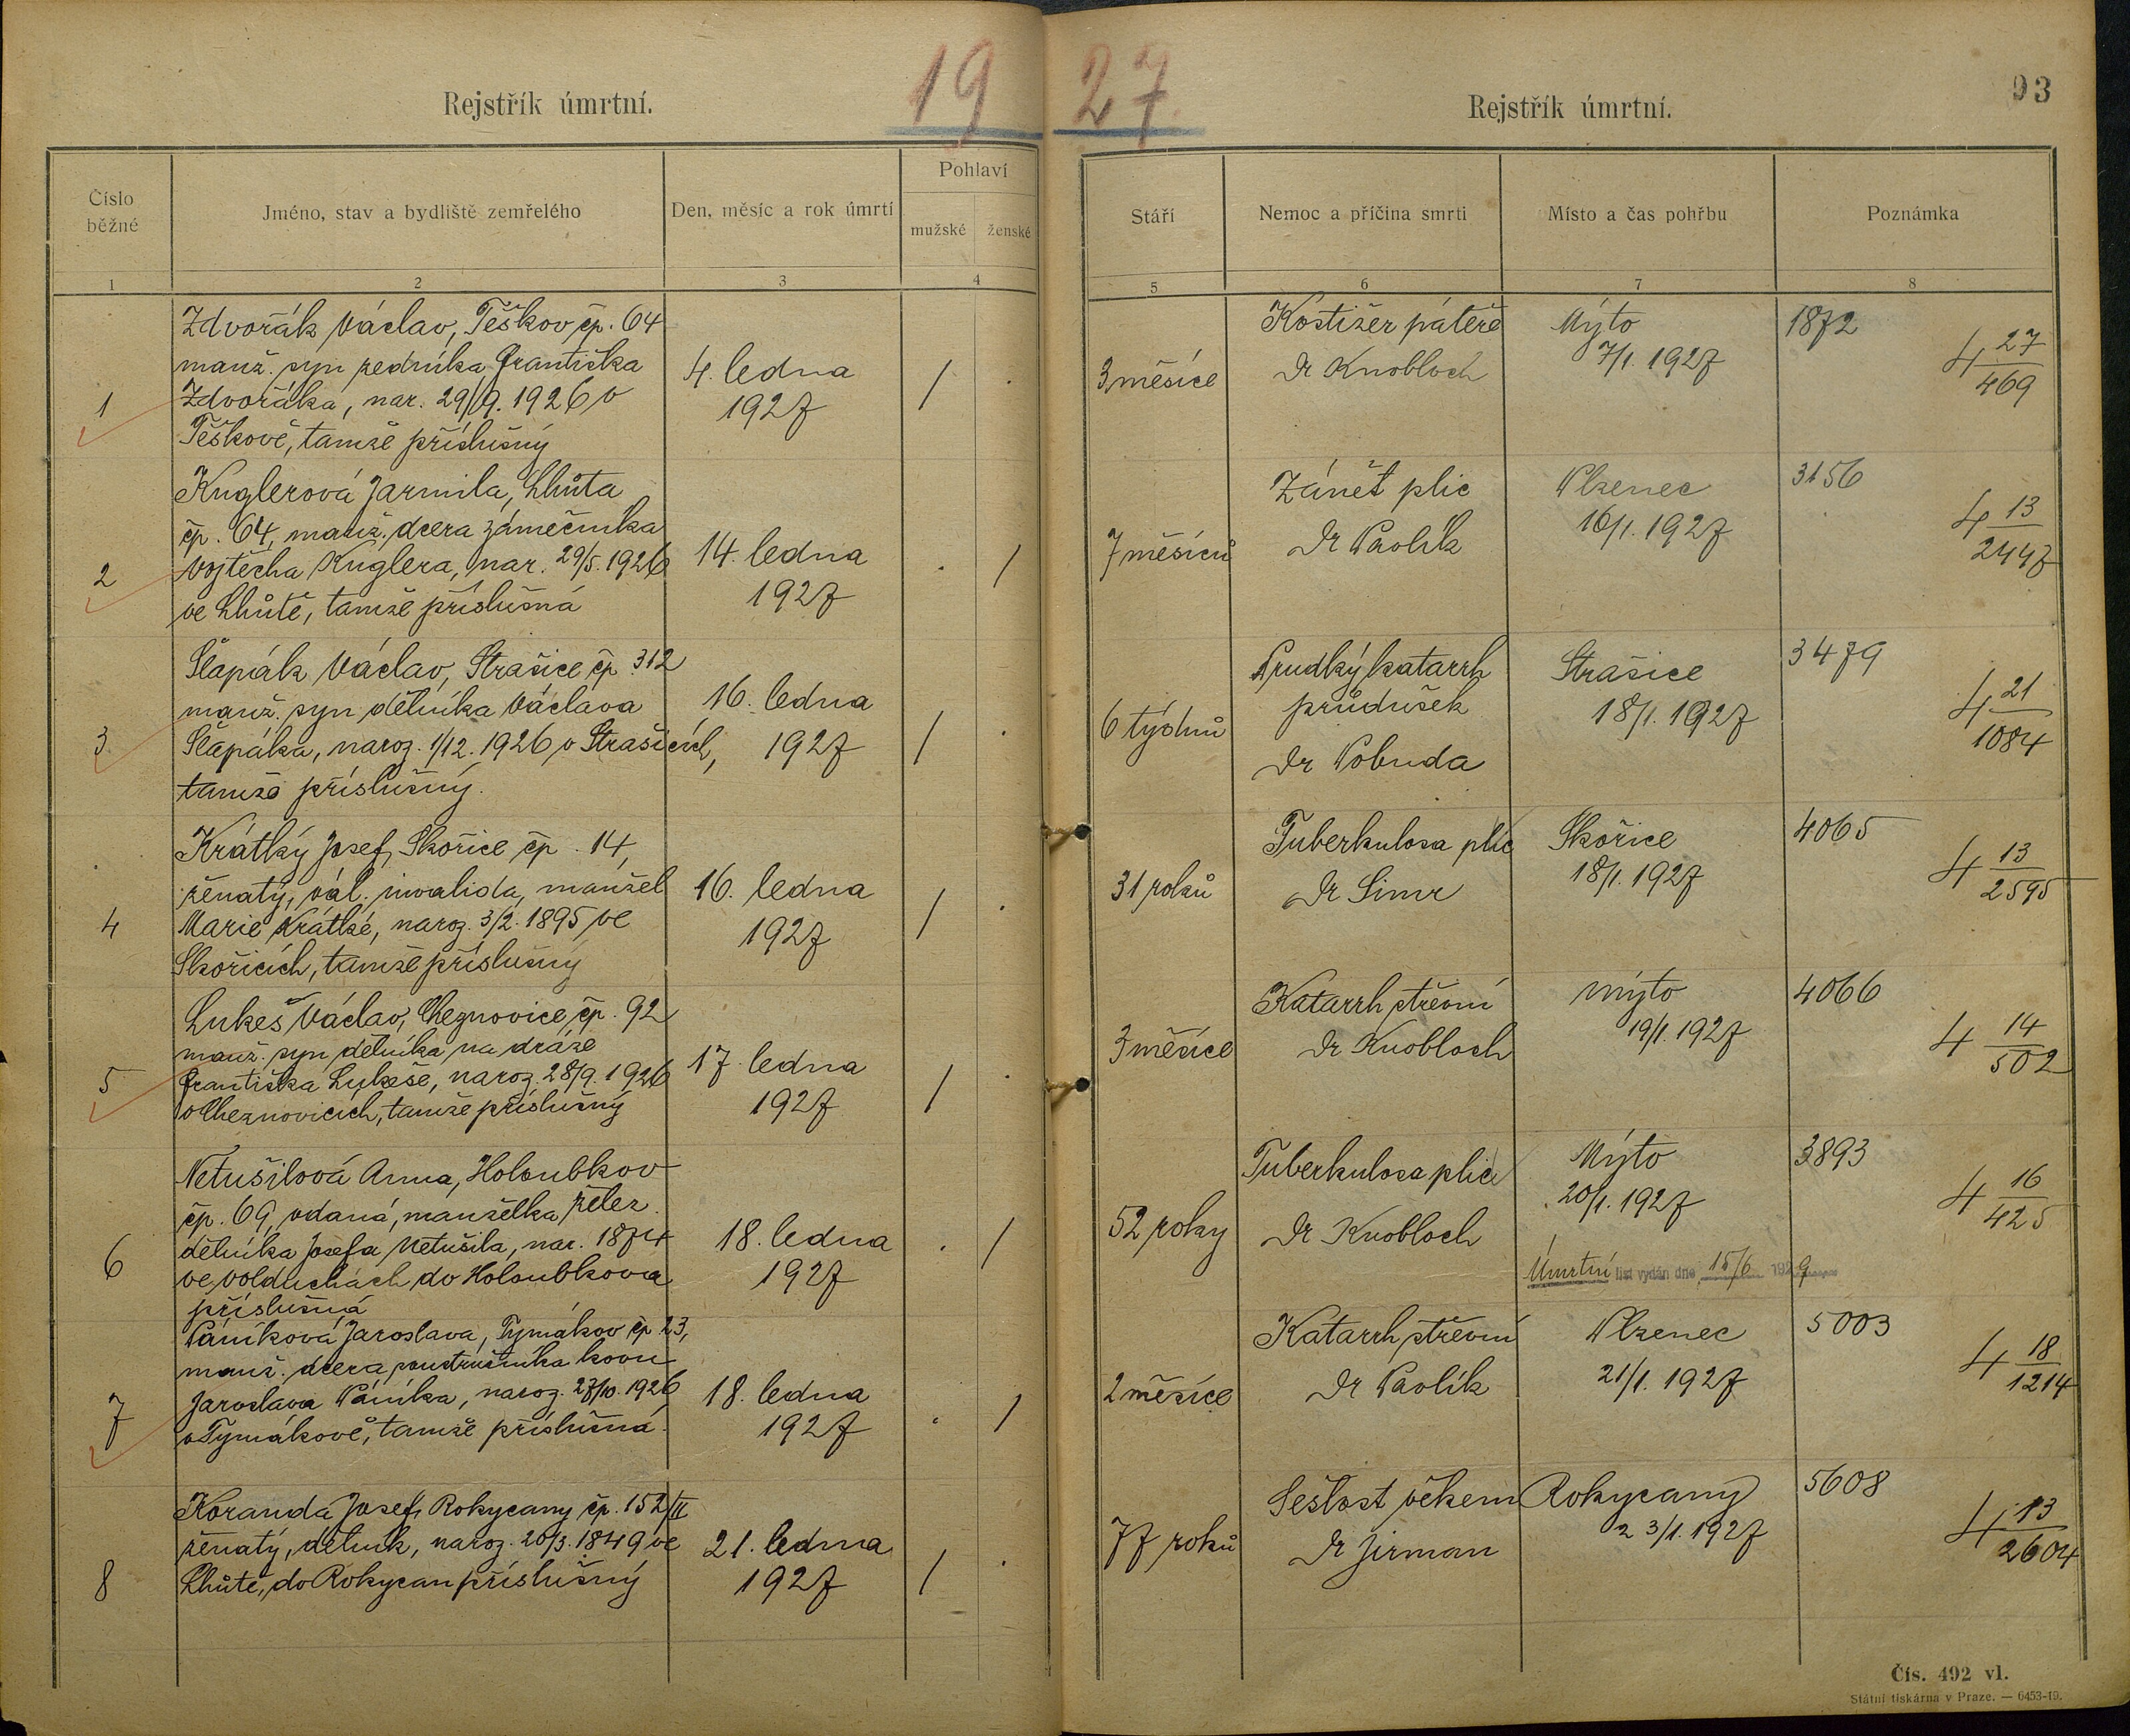 19 27.
93
Rejstřík úmrtní.
Rejstřík úmrtní.
Číslo běžné
Jméno, stav a bydliště zemřelého
Den, měsíc a rok úmrtí
Pohlaví
mužské
ženské
Stáří
Nemoc a příčina smrti
Místo a čas pohřbu
Poznámka
1
2
3
4
5
6
7
8
1
Zdvořák Václav, Těškov čp. 64
manž. syn zedníka Františka
Zdvořáka, nar. 29/9. 1926 v
Těškově, tamže příslušný
4. ledna
1927
/
.
3 měsíce
Kostižer páteře
Dr Knobloch
Mýto
7/1. 1927
1872
4 27/469
2
Kuglerová Jarmila, Lhůta
čp. 64, manž. dcera zámečníka
Vojtěcha Kuglera, nar. 29/5. 1926
ve Lhůtě, tamže příslušná
14. ledna
1927
.
/
7 měsíců
Zánět plic
Dr Pavlík
Plzenec
16/1. 1927
3156
4 13/2447
3
Šlapák Václav, Strašice čp. 312
manž. syn dělníka Václava
Šlapáka, naroz. 1/12. 1926 v Strašicích,
tamže příslušný.
16. ledna
1927
/
.
6 týdnů
Prudký katarrh
průdušek
Dr Pobuda
Strašice
18/1. 1927
3479
4 21/1084
4
Krátký Josef, Skořice čp. 14,
ženatý, vál. invalida, manžel
Marie Krátké, naroz. 3/2. 1895 ve
Skořicích, tamže příslušný
16. ledna
1927
/
.
31 roků
Tuberkulosa plic
Dr Simr
Skořice
18/1. 1927
4065
4 13/2595
5
Lukeš Václav, Cheznovice čp. 92
manž. syn dělníka na dráze
Františka Lukeše, naroz. 28/9. 1926
v Cheznovicích, tamže příslušný
17. ledna
1927
/
.
3 měsíce
Katarrh střevní
Dr Knobloch
Mýto
19/1. 1927
4066
4 14/502
6
Netušilová Anna, Holoubkov
čp. 69, vdaná, manželka želez.
dělníka Josefa Netušila, nar. 1874
ve Volduchách do Holoubkova
příslušná
18. ledna
1927
.
/
52 roky
Tuberkulosa plic
Dr Knobloch
Mýto
20/1. 1927
Úmrtní list vydán dne 15/6 1929
3893
4 16/425
7
Páníková Jaroslava, Tymákov čp 23,
manž. dcera soustružníka kovu
Jaroslava Páníka, naroz. 27/10. 1926
v Tymákově, tamže příslušná.
18. ledna
1927
.
/
2 měsíce
Katarrh střevní
Dr Pavlík
Plzenec
21/1. 1927
5003
4 18/1214
8
Koranda Josef, Rokycany čp. 152/II
ženatý, dělník, naroz. 20/3. 1849 ve
Lhůtě, do Rokycan příslušný
21. ledna
1927
/
.
77 roků
Sešlost věkem
Dr Jirman
Rokycany
23/1. 1927
5608
4 13/2604
Čís. 492 vl.
Státní tiskárna v Praze. — 6453-19.